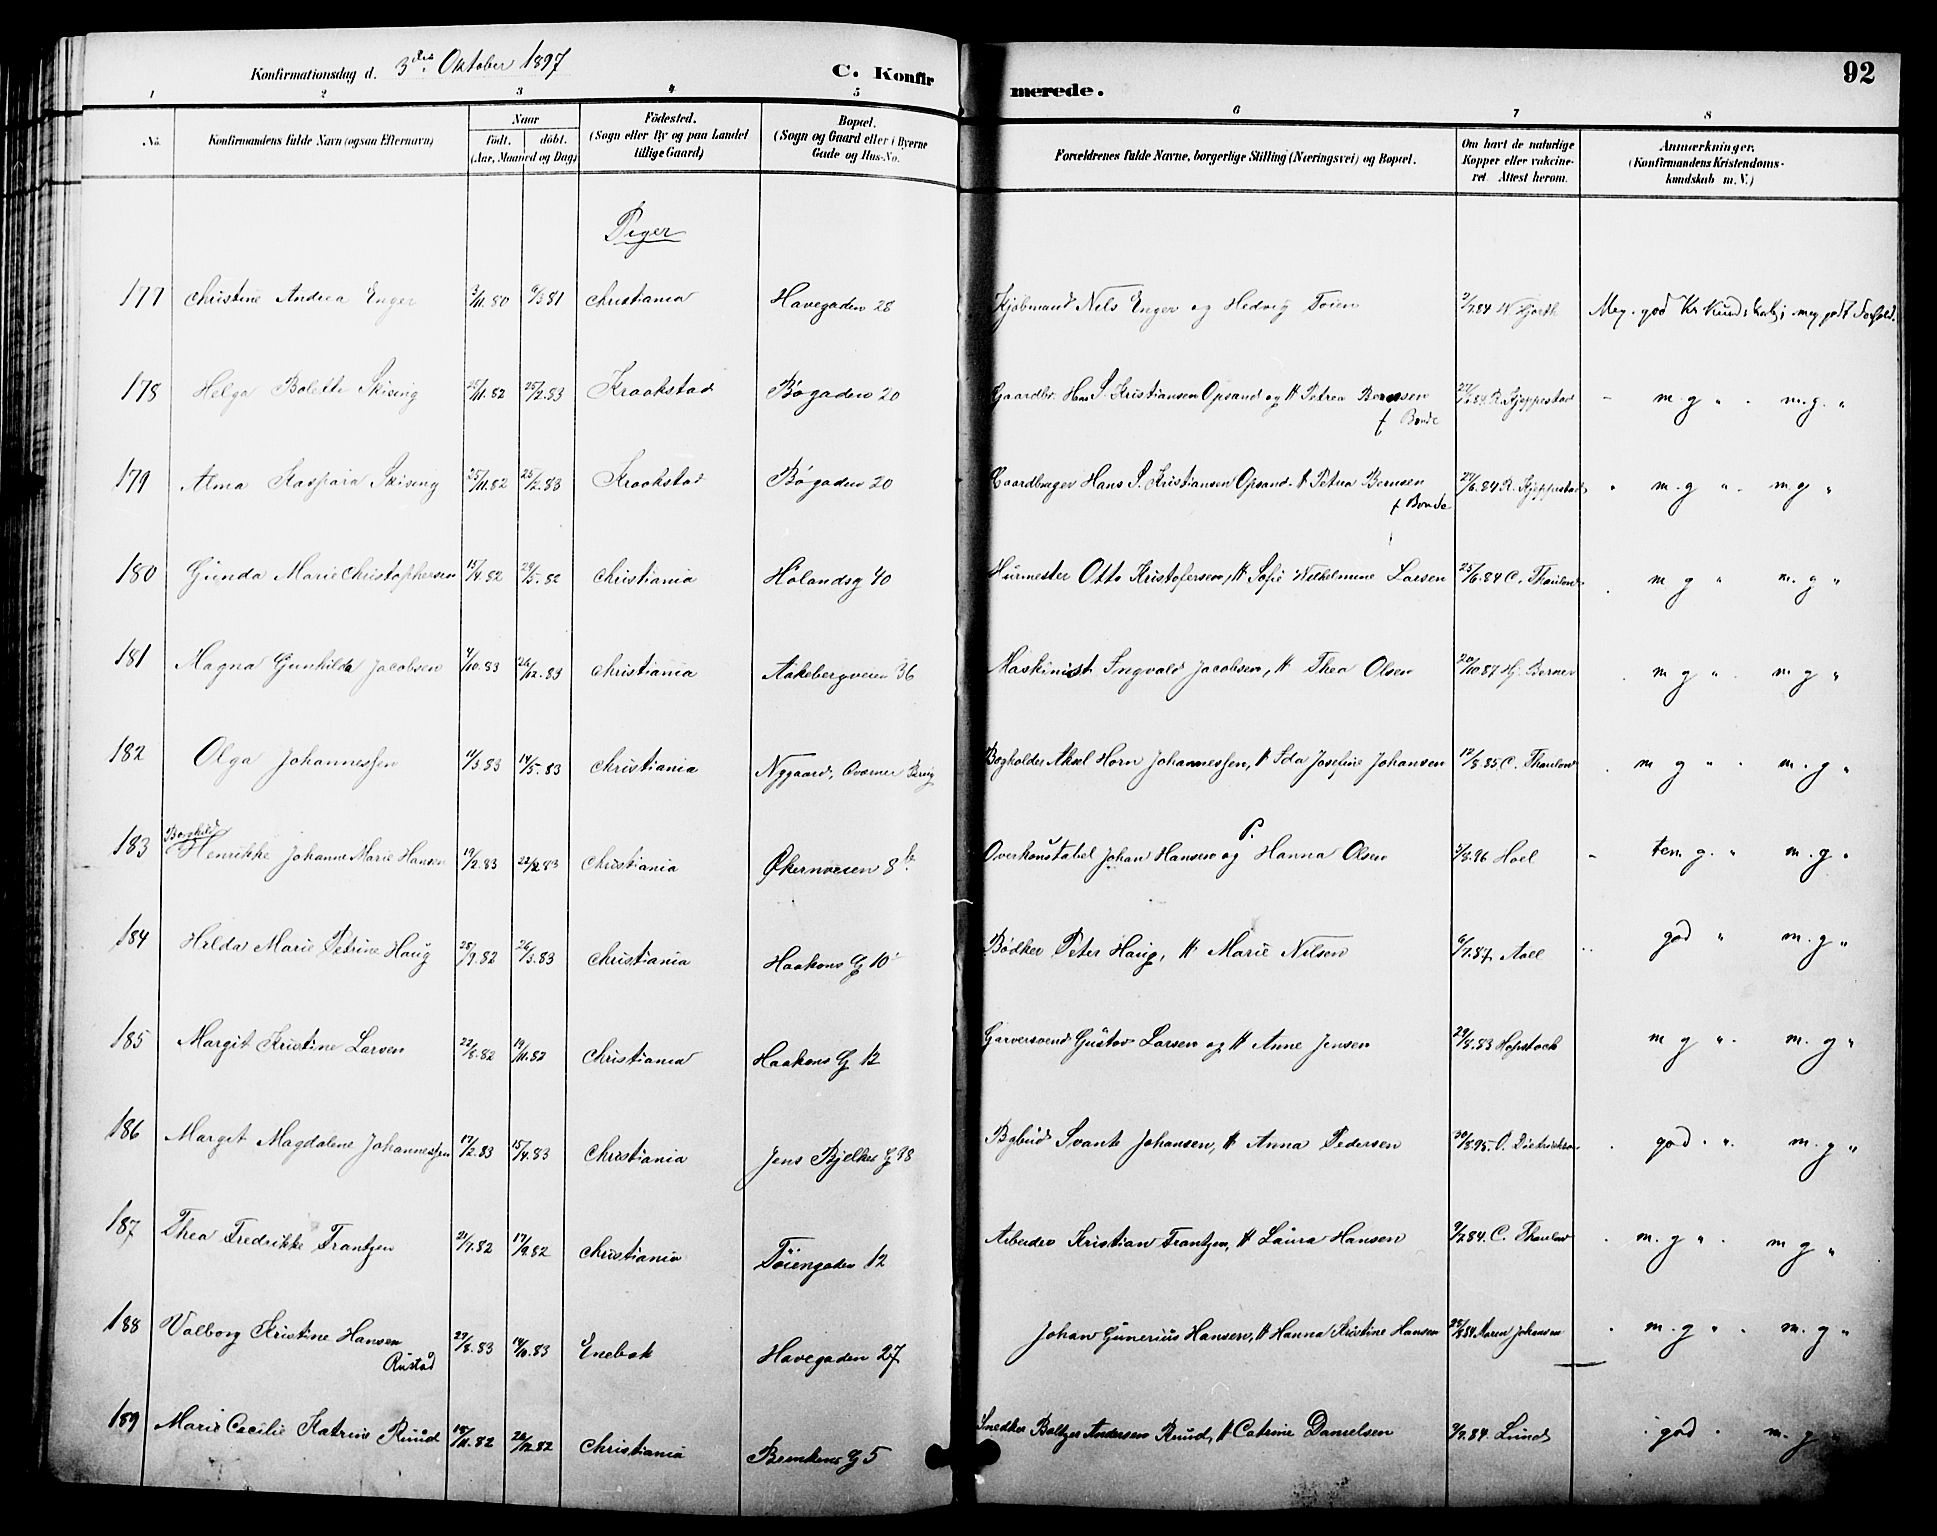 Konfirmationsdag d. 3die Oktober 1897
C. Konfirmerede. 92
1 2 3 4 5 6 7 8
No. Konfirmandens fulde Navn (ogsaa Efternavn) Naar födt. döbt. (Aar, Maaned og Dag) Födested. (Sogn eller By og paa Landet tillige Gaard) Bopæl. (Sogn og Gaard eller i Byerne Gade og Hus-No. Forældrenes fulde Navne, borgerlige Stilling (Næringsvei) og Bopæl. Om havt de naturlige Kopper eller vakcineret. Attest herom. Anmærkninger. (Konfirmandens Kristendomskundskab m. V.)
Piger
177 Christine Andrea Enger 3/11.80 6/3 81 Christiania Havegaden 28 Kjøbmand Nils Enger og Hedvig Toien 2/7.84 N Hjorth Meg. god Kr Kundskab; meg godt Forhold.
178 Helga Bolette Skising 25/11.82 25/2.83 Kraakstad Bøgaden 20 Gaardbr. Hans S. Kristiansen Opsand og H Petrea Bernsen f Bonde 27/6.84 R. Kjeppestad - m. g " . m. g. "
179 Alma Kaspara Skising 25/11.82 25/2.83 Kraakstad Bøgaden 20 Gaardbruger Hans S. Kristiansen Opsand H Petrea Bernsen f Bonde 27/6.84 R. Kjeppestad " m. g " . m. g "
180 Gunda Marie Christophersen 15/4.82 29/5.82 Christiania Hølandsg 40 Murmester Otto Kristofersen, H Sofie Wilhelmine Larsen 25/6.84 C. Thaulow . m g " m. g "
181 Magna Gunhilda Jacobsen 4/10.83 26/12.83 Christiania Aakebergveien 36 Maskinist Ingvald Jacobsen, H Thea Olsen 20/10 87 Hj. Berner . m g " . m g "
182 Olga Johannessen 11/3.83 14/5.83 Christiania Nygaard, Oværner Bring Bogholder Aksel Horn Johannessen, H Ida Josefine Johansen 12/8.85 C. Thaulow . m g " . m. g "
183 Borghild Henrikke Johanne Marie Hansen 19/2.83 22/2 83 Christiania Økernveien 8b Overkonstabel Johan Hansen og P. Hanna Olsen 3/8.96 Hoel - tem g. " m. g "
184 Hilda Marie Petrine Haug 28/9.82 26/3.83 Christiania Haakons G 10 Bødker Peter Haug, H Marie Nilsen 6/7.87 Aall .. god " m. g "
185 Margit Kristine Larsen 22/8.82 19/11.82 Christiania Haakons G 12 Garversvend Gustav Larsen og H Anne Jensen 29/8.83 Hopstock m g " . m. g "
186 Margit Magdalene Johannessen 17/2.83 15/4.83 Christiania Jens Bjelkes G 98 Bybud Svante Johansen, H Anna Pedersen 30/8.95 O. Dietrichson . god . ". m. g "
187 Thea Fredrikke Frantzen 21/7.82 17/9.82 Christiania Töiengaden 12 Arbeider Kristian Frantzen, H Laura Hansen 9/7.84 C. Thaulow . m. g " . m g "
188 Valborg Kristine Hansen Rustad 29/8.83 14/10.83 Enebak Havegaden 27 Johan Gunerius Hansen, H Hanna Kristine Hansen 28/8.84 Maren Johansen . m. g " . m. g "
189 Marie Cecilie Katrine Ruud 18/11.82 26/12.82 Christiania Brinkens G 5 Snedker Boltzer Andersen Ruud, H Catrine Danielsen 9/7.84 Lund . god . m. g